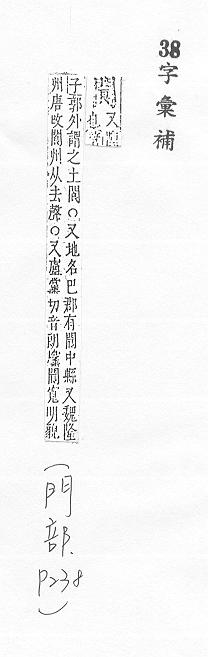 38字彙補
又隍
瀆也莊
子郭外謂之土閬○又地名巴郡有閬中縣又魏隆
州唐改閬州从去聲○又盧黨切音朗爣閬寬明貌
(門部 P238)